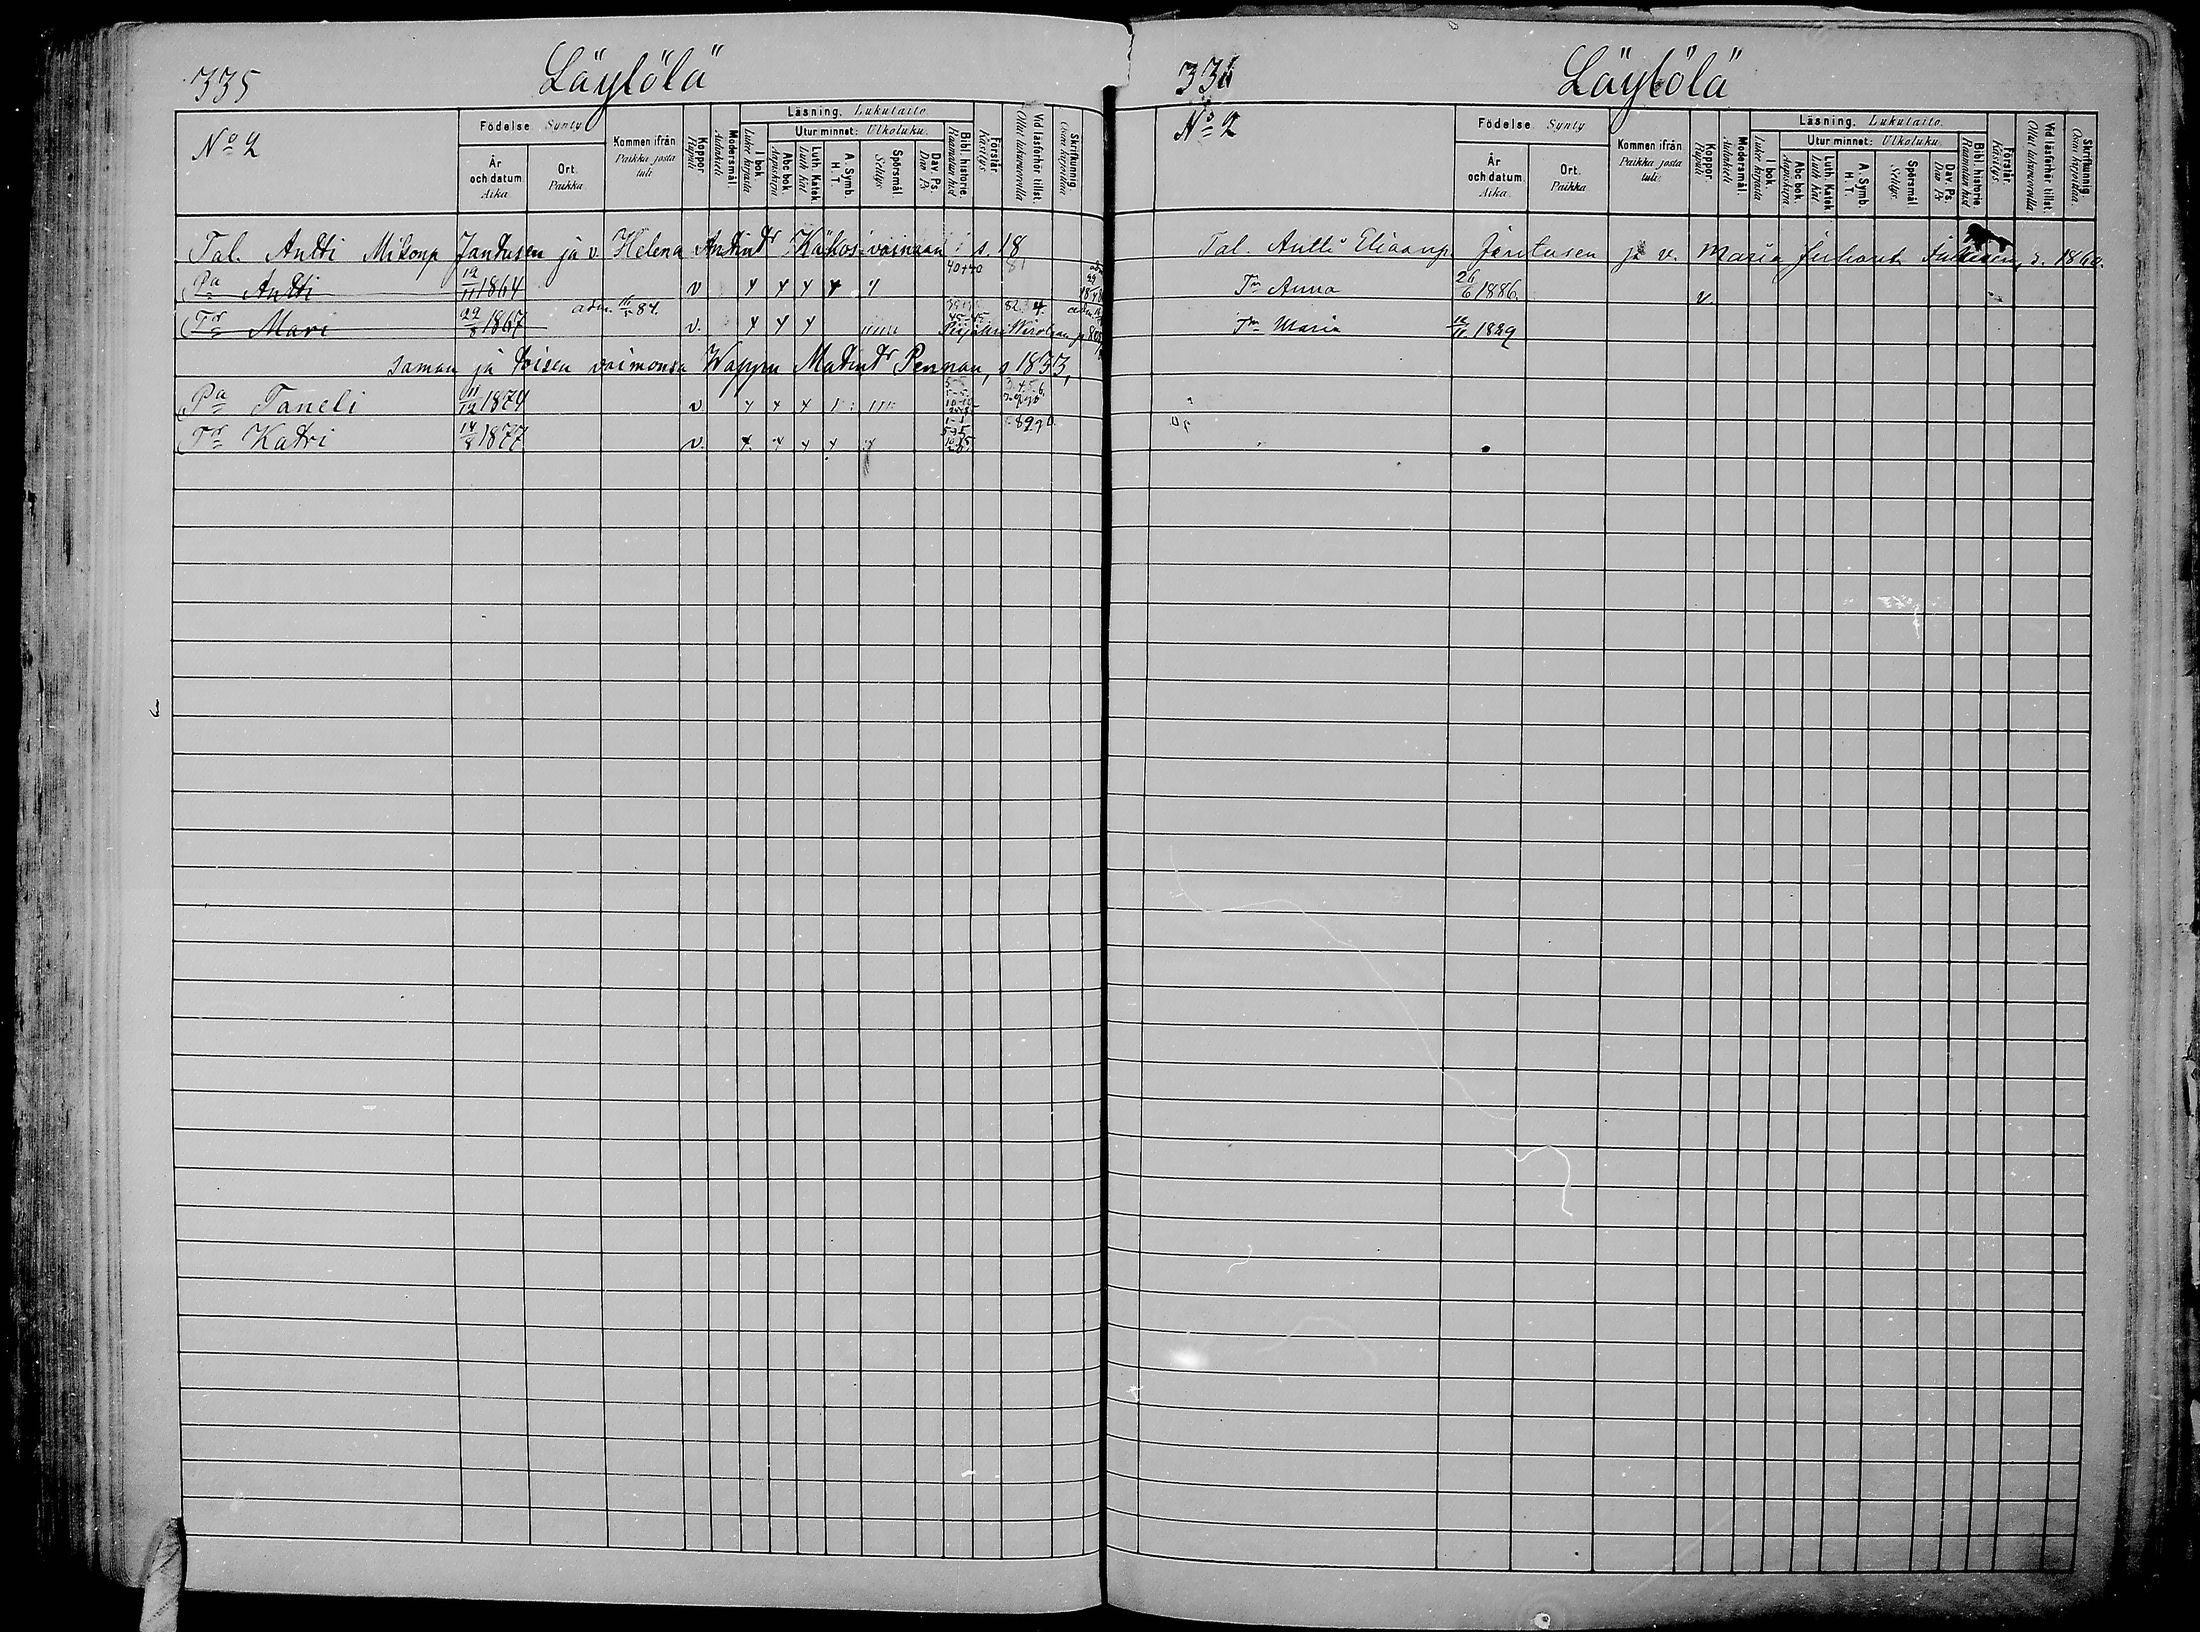 335
Läylölä
No 2
Födelse. Synty
År och datum. Aika.
Ort. Paikka.
Kommen ifrån Paikka, josta tuli.
Koppor. Rupuli
Modersmål. Äidinkieli
Läsning. Lukutaito.
I bok. Lukee kirjasta
Utur minnet: Ulkoluku.
Abc bok. Aapiskirja
Luth. Katek. Luth. Kat.
A. Symb. H. T.
Spörsmål. Selitys.
Dav. Ps. Dav. Ps
Bibl. historie. Raamatun hist
Förstår. Käsitys.
Vid läsförhör tillst. Ollut lukuvuorolla
Skrifkunnig. Osaa kirjoittaa.
Tal. Antti Mikonp Jantusen ja v. Helena Antint Kähös vainaan s. 18
Pa Antti 12/11 1864 v 40+40 81
Tr Mari 22/8 1867 adm. 84. v.
saman ja toisen vaimonsa Wappu Matint Pennan, s 1833,
Pa Taneli 11/12 1874 v
Tr Katri 14/8 1877 v. 8990.
336
Läylölä
No 2
Födelse. Synty
År och datum. Aika.
Ort. Paikka
Kommen ifrån Paikka, josta tuli.
Koppor. Rupuli
Modersmål. Äidinkieli
Läsning. Lukutaito.
I bok. Lukee kirjasta
Utur minnet: Ulkoluku.
Abc bok. Aapiskirja
Luth. Katek. Luth. Kat.
A. Symb. H. T.
Spörsmål. Selitys.
Dav. Ps. Dav. Ps
Bibl. historie. Raamatun hist
Förstår. Käsitys.
Vid läsförhör tillst. Ollut lukuvuorolla.
Skrifkunnig. Osaa kirjoittaa.
Tal. Antti Eliaanp. Jantusen ja v. Maria Juhont s. 1860.
Tr Anna 26/6 1886. v
Tr Maria 1889